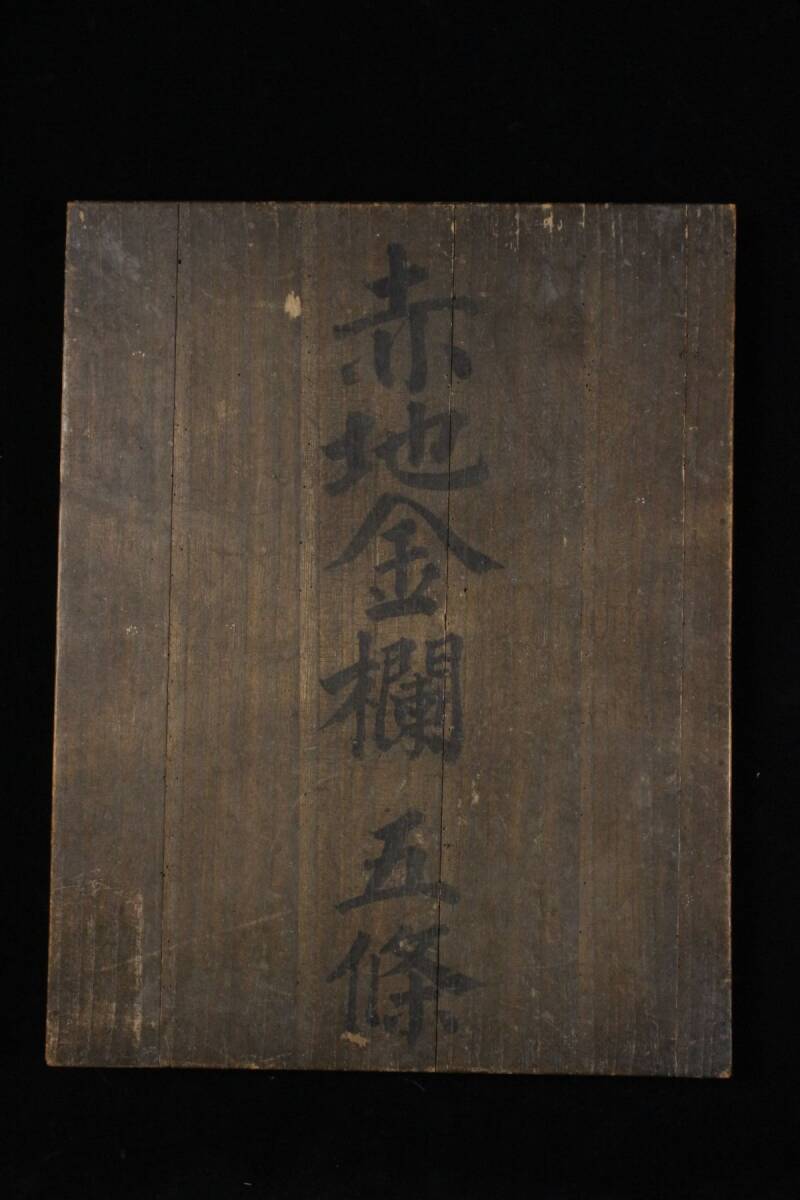 赤地金欄 五條